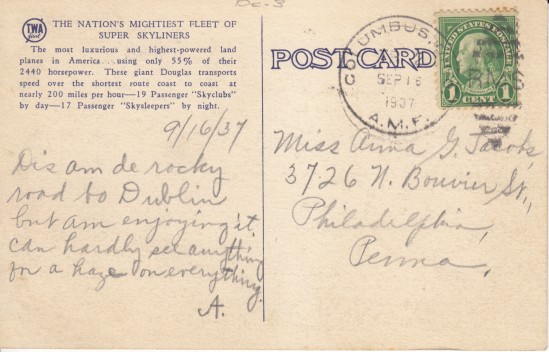 DC-3
TWA
fleet
THE NATION'S MIGHTIEST FLEET OF
SUPER SKYLINERS
The most luxurious and highest-powered land
planes in America . . . using only 55% of their
2440 horsepower. These giant Douglas transports
speed over the shortest route coast to coast at
nearly 200 miles per hour—19 Passenger "Skyclubs"
by day—17 Passenger "Skysleepers" by night.
9/16/37
Dis am de rocky
road to Dublin
but am enjoying it.
Can hardly see anything
for a haze on everything.
A.
POST CARD
COLUMBUS,
SEP 16
1937
A.M.F.
UNITED STATES POSTAGE
1 CENT 1
Miss Anna G. Jacobs,
3726 N. Bouvier St.,
Philadelphia,
Penna,